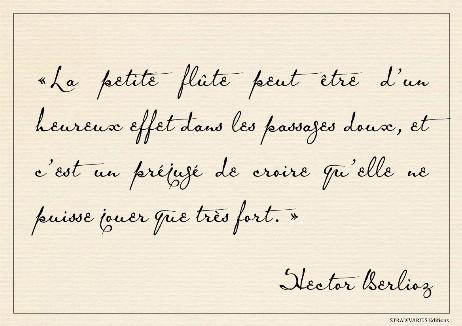 «La petite flûte peut être d'un
heureux effet dans les passages doux, et
c'est un préjugé de croire qu'elle ne
puisse jouer que très fort. »
Hector Berlioz
STRADIVARIUS Editions